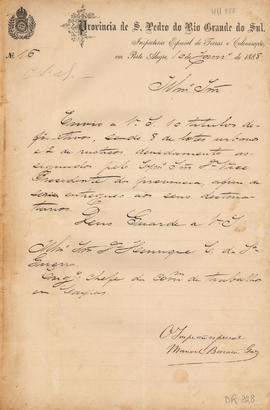 Provincia de S. Pedro do Rio Grande do Sul.
Inspectoria Especial de Terras e Colonisação,
em Porto Alegre, 12 de 1888
Nº 15
Illmo Snr
Envio a V. S. 10 titulos de-
finitivos, sendo 8 de lotes urbanos
e 2 de rusticos devidamente as-
signados pelo Exmo Snr Dr Vice
Presidente da provincia, afim de
serem entregues aos seus destina-
tarios.
Deus Guarde a V. S.
Illmo Snr Dr Henrique
Engro Chefe da Comm de trabalhos
em Caxias
O Inspector especial
Manoel
DR-328